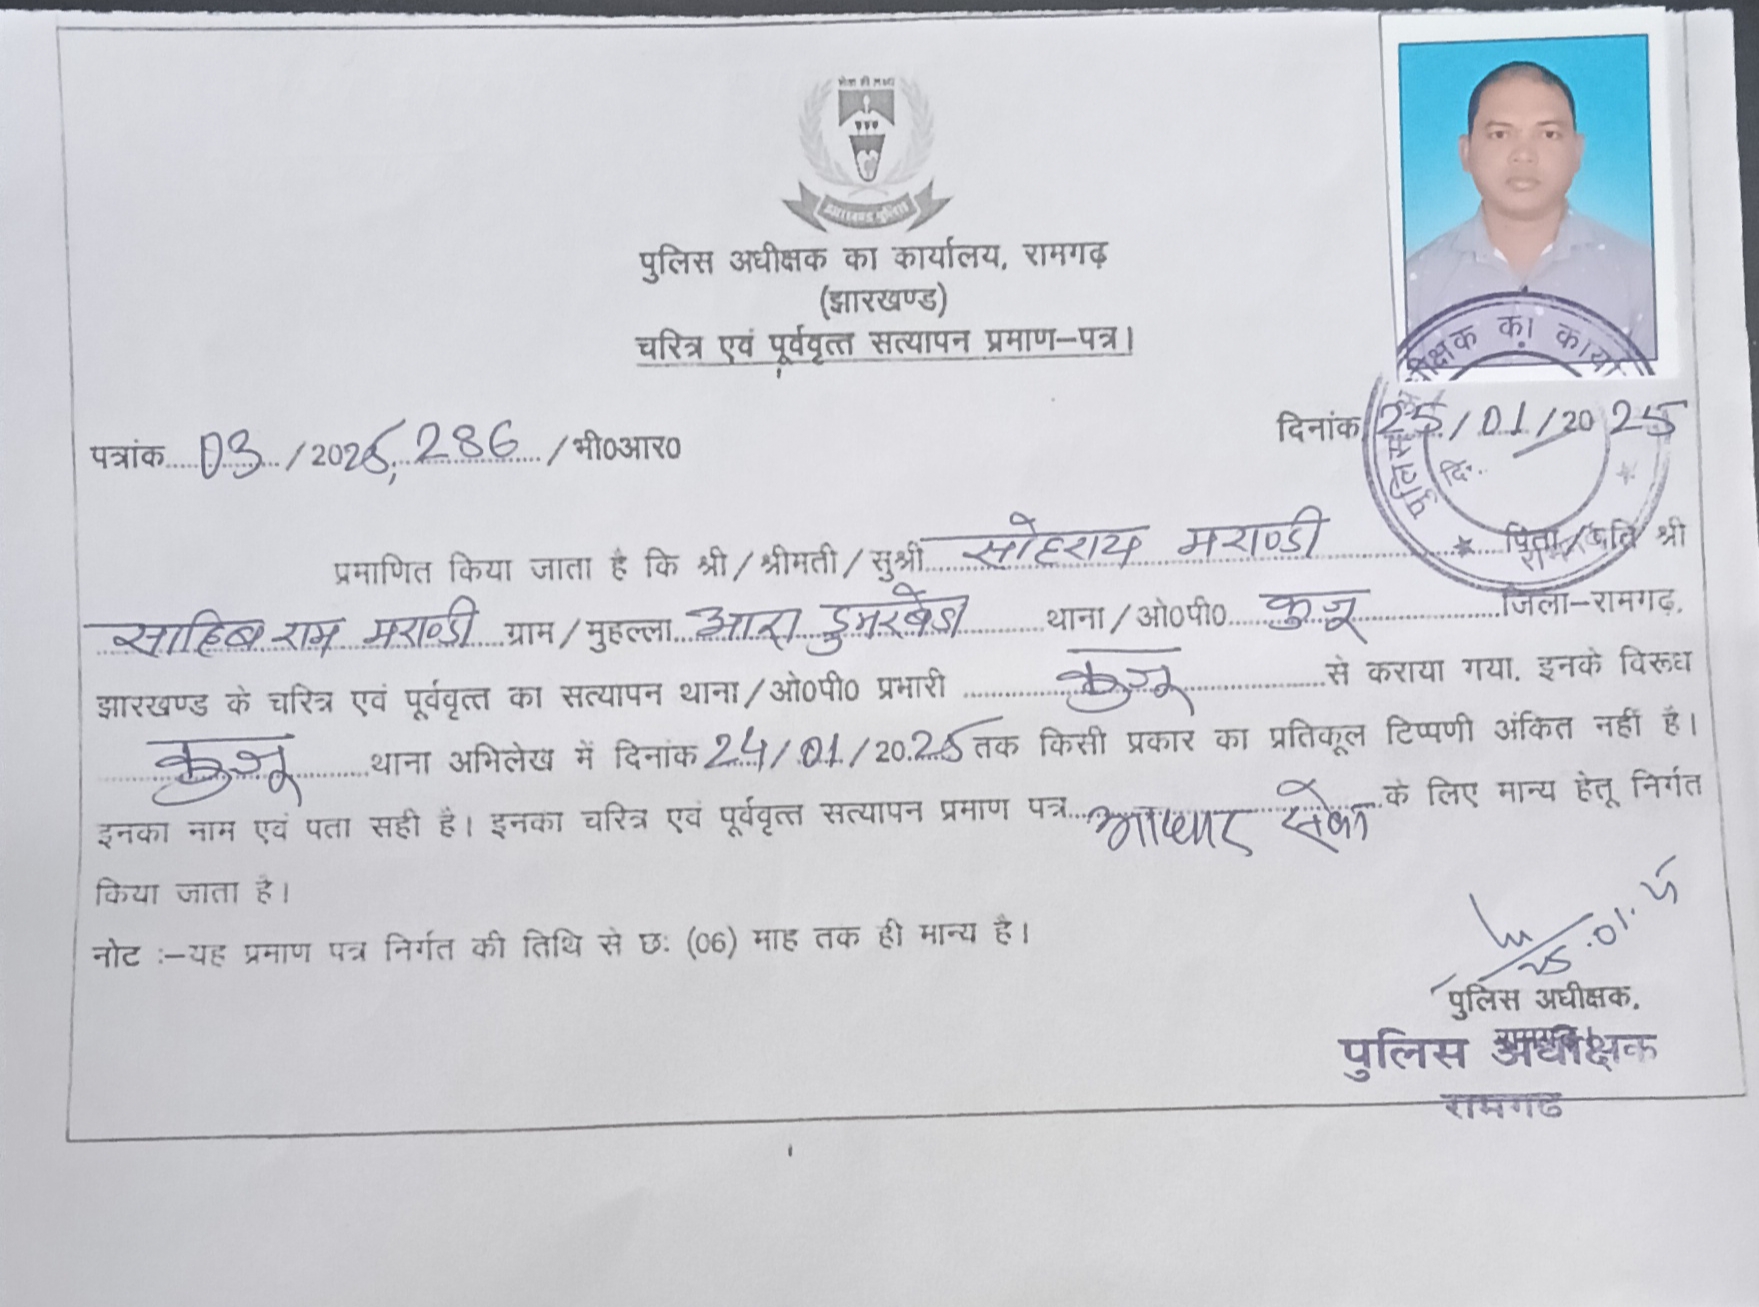 सेवा ही लक्ष्य
झारखण्ड पुलिस
पुलिस अधीक्षक का कार्यालय, रामगढ़
(झारखण्ड)
चरित्र एवं पूर्ववृत्त सत्यापन प्रमाण-पत्र।
पत्रांक 03 /2025, 286 /भी0आर0
दिनांक 25/01/2025
प्रमाणित किया जाता है कि श्री/श्रीमती/सुश्री सोहराय मराण्डी पिता/पति श्री
साहिब राम मराण्डी ग्राम/मुहल्ला आरा डुमरबेडा थाना/ओ0पी0 कुजू जिला-रामगढ़,
झारखण्ड के चरित्र एवं पूर्ववृत्त का सत्यापन थाना/ओ0पी0 प्रभारी कुजू से कराया गया, इनके विरूध
कुजू थाना अभिलेख में दिनांक 24/01/2025 तक किसी प्रकार का प्रतिकूल टिप्पणी अंकित नहीं है।
इनका नाम एवं पता सही है। इनका चरित्र एवं पूर्ववृत्त सत्यापन प्रमाण पत्र आधार सेवा के लिए मान्य हेतू निर्गत
किया जाता है।
नोट :-यह प्रमाण पत्र निर्गत की तिथि से छः (06) माह तक ही मान्य है।
25.01.25
पुलिस अधीक्षक,
रामगढ़।
पुलिस अधीक्षक
रामगढ